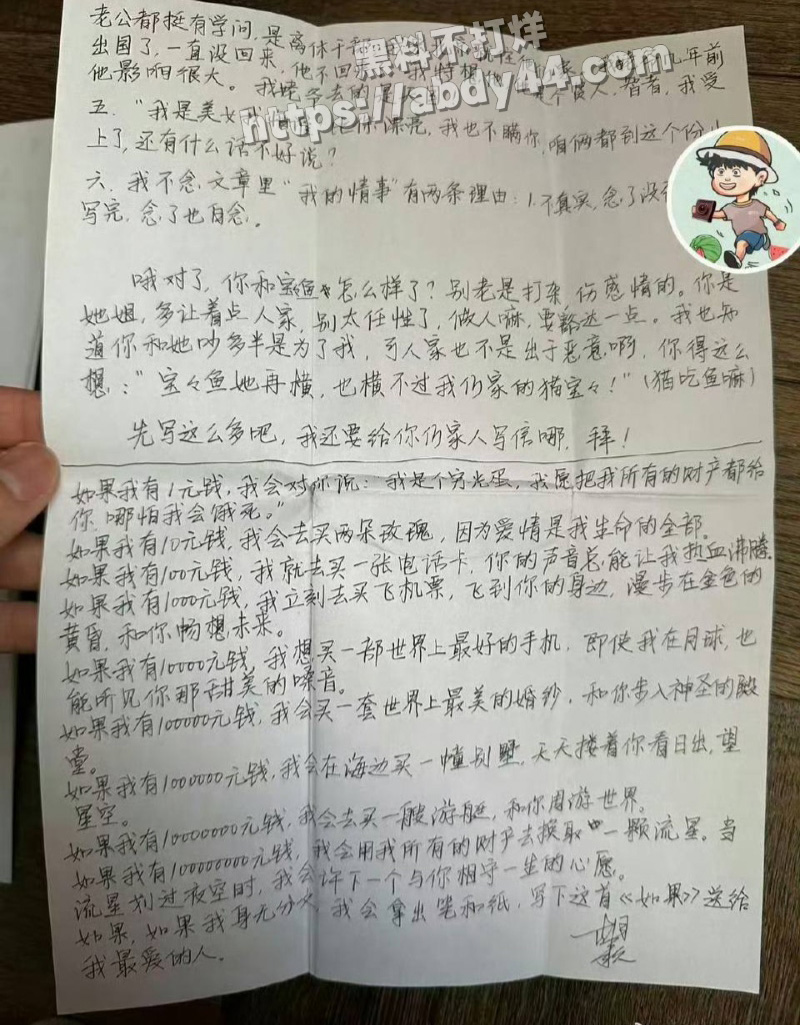 老公都挺有学问，是离休干部
出国了，一直没回来，他不回来，我特想他
他影响很大。我姥爷去的是
五．“我是美女我怕谁”
上了，还有什么话不好说？
六．我不念文章里“我的情事”有两条理由：1.不真实，念了没
写完，念了也白念。
哦对了，你和宝鱼々怎么样了？别老是打架，伤感情的。你是
她姐，多让着点人家，别太任性了，做人嘛，要豁达一点。我也知
道你和她吵多半是为了我，可人家也不是出于恶意啊，你得这么
想：“宝々鱼她再横，也横不过我们家的猫宝々！”（猫吃鱼嘛）
先写这么多吧，我还要给你们家人写信哪．拜！
如果我有1元钱，我会对你说：“我是个穷光蛋，我愿把我所有的财产都给
你，哪怕我会饿死。”
如果我有10元钱，我会去买两朵玫瑰，因为爱情是我生命的全部。
如果我有100元钱，我就去买一张电话卡，你的声音总能让我热血沸腾。
如果我有1000元钱，我立刻去买飞机票，飞到你的身边，漫步在金色的
黄昏，和你畅想未来。
如果我有10000元钱，我想买一部世界上最好的手机，即使我在月球，也
能听见你那甜美的嗓音。
如果我有100000元钱，我会买一套世界上最美的婚纱，和你步入神圣的殿
堂。
如果我有1000000元钱，我会在海边买一幢别墅，天天搂着你看日出，望
星空。
如果我有10000000元钱，我会去买一艘游艇，和你周游世界。
如果我有100000000元钱，我会用我所有的财产去换取一颗流星。当
流星划过夜空时，我会许下一个与你相守一生的心愿。
如果，如果我身无分文，我会拿出笔和纸，写下这首《如果》送给
我最爱的人。
黑料不打烊
https://abdy44.com